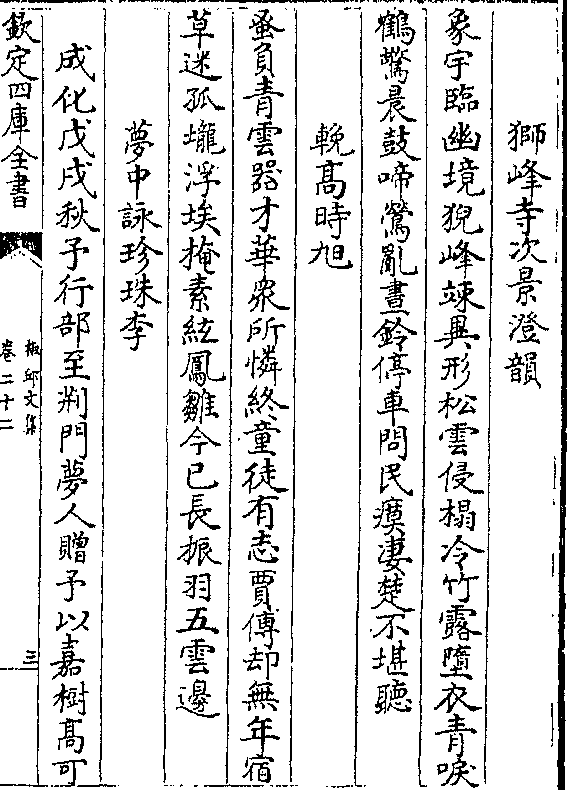 獅峰寺次景澄韻
象宇臨幽境猊峰竦異形松雲侵榻冷竹露墮衣青唳
鶴驚晨鼓啼鶯亂晝鈴停車問民瘼淒楚不堪聽
輓高時旭
蚤負青雲器才華衆所憐終童徒有志賈傅却無年宿
草迷孤壠浮埃掩素絃鳳雛今已長振羽五雲邊
夢中詠珍珠李
成化戊戌秋予行部至荆門夢人贈予以嘉樹高可
欽定四庫全書
椒邱文集
卷二十二
三